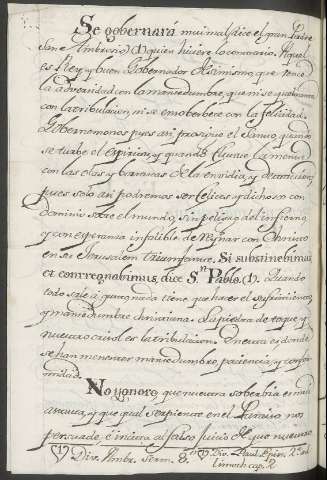 Se gobernará mui mal, dice el gran Padre
San Ambrosio, (1) quien hiciere lo contrario. Aquel
es Rey, y buen Gobernador de si mismo, que vence
la adversidad con la mansedumbre, que ni se quebranta
con la tribulacion, ni se ensoberbece con la felicidad.
Gobernemonos pues asi prosigue el Santo, quando
se turbe el espiritu, y quando
con las olas y de la envidia, y detraccion,
pues solo asi podremos ser felices, y dichosos con
dominio sobre el mundo, sin peligro del infierno,
y con esperanza infalible de Reynar con Christo
en su Jerusalem triumfante. Si substinebimus
et conrregnabimus, dice Sn. Pablo. (1). Quando
todo sale á gusto, nada tiene que hacer el sufrimiento,
y mansedumbre christiana. La piedra de toque, y
nuestro crisol es la tribulacion. En esta es donde
se han menester mansedumbre, paciencia, y confor-
midad.
No ygnoro, que nuestra soberbia es mui
astuta, y que qual serpiente en el Paraiso nos
persuade, é incita al falso juicio de que nuestro
(1) Div. Ambr. Serm. 8. Div. Paul. Epis. 2ª ad
Timoth. cap. 2